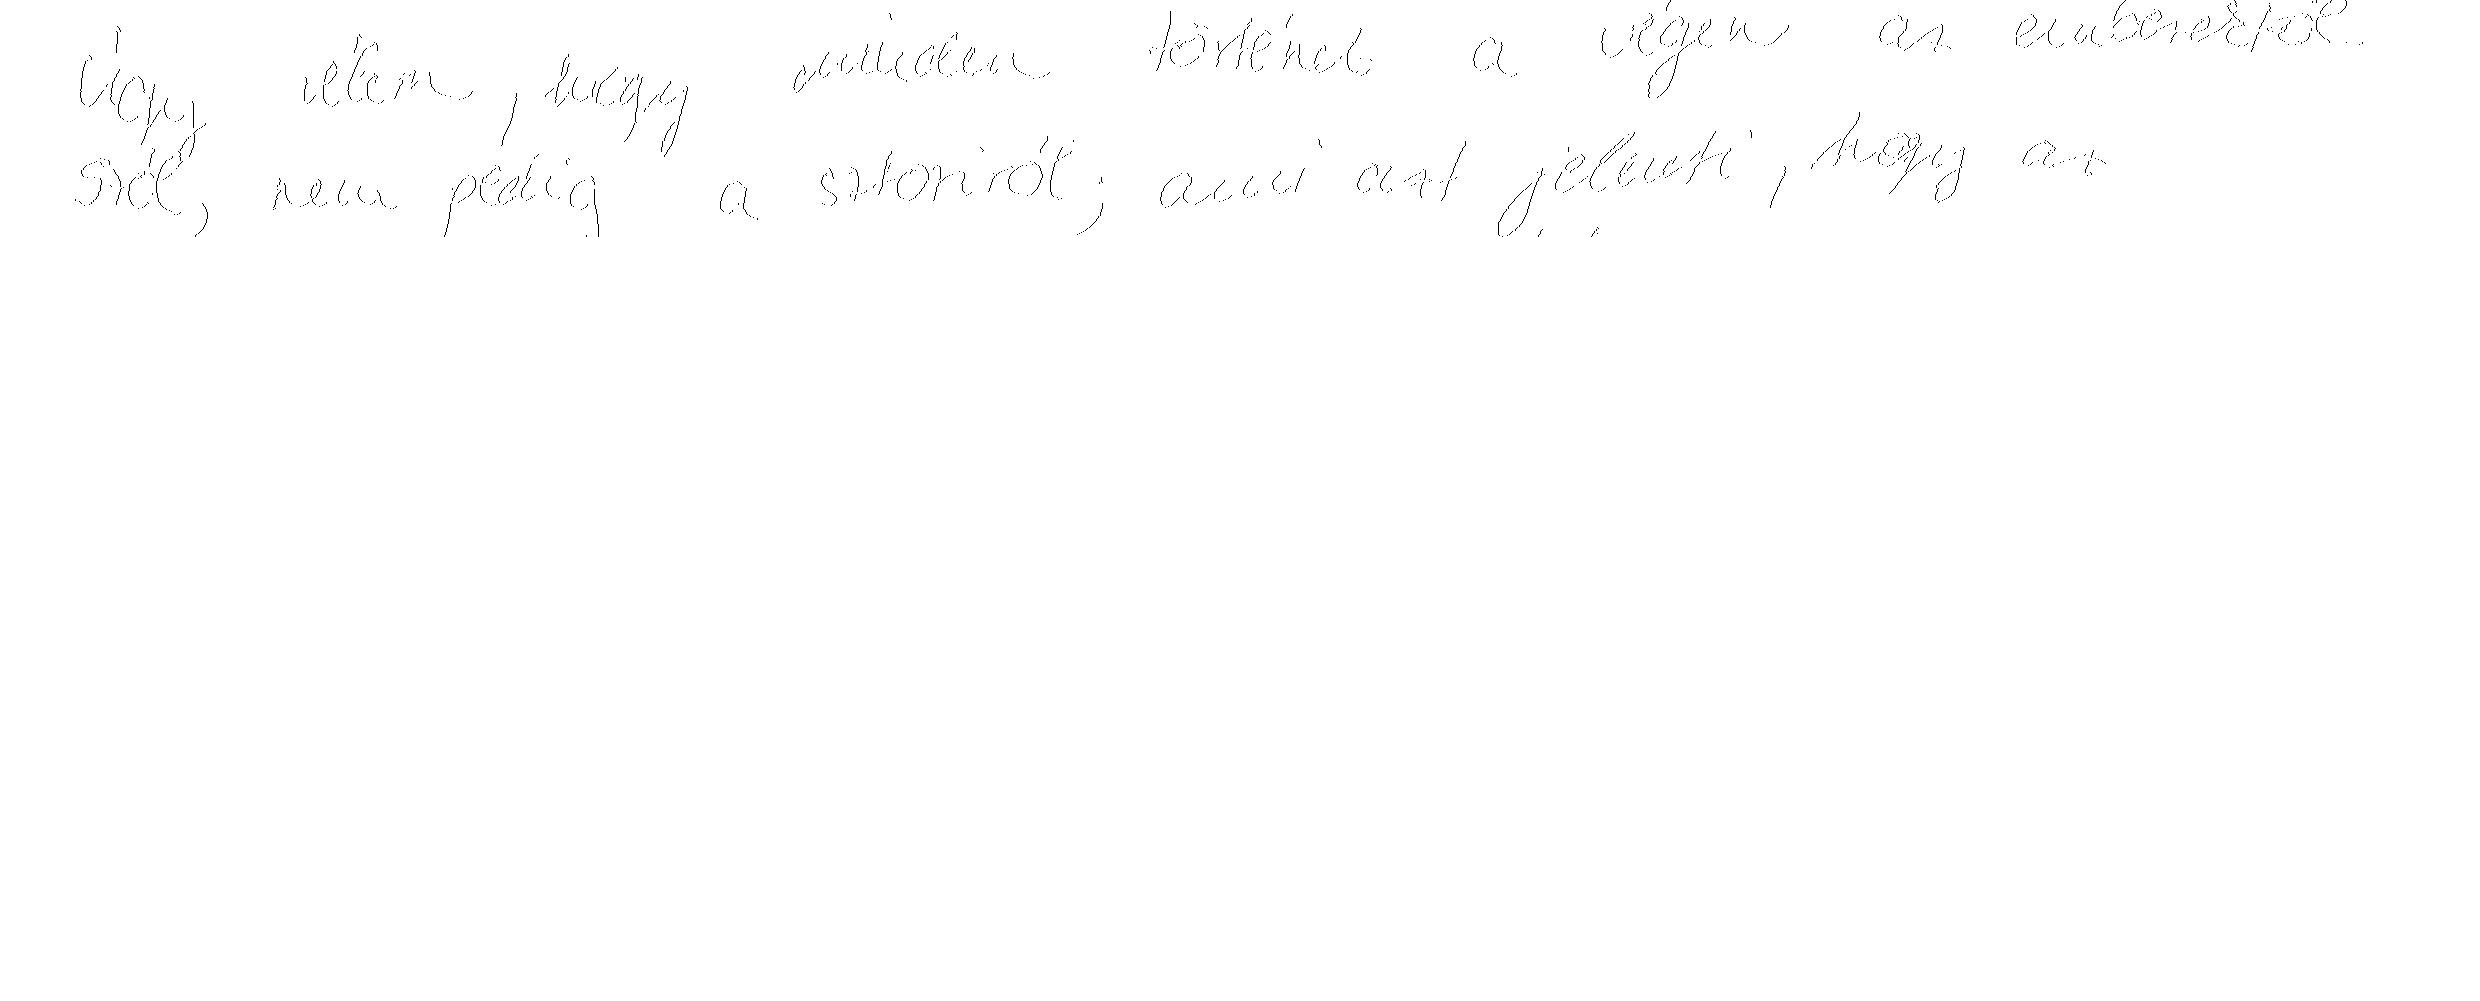 Úgy vélem, hogy minden történet a végén az emberekről
szól, nem pedig a sztoriról, ami azt jelenti, hogy az